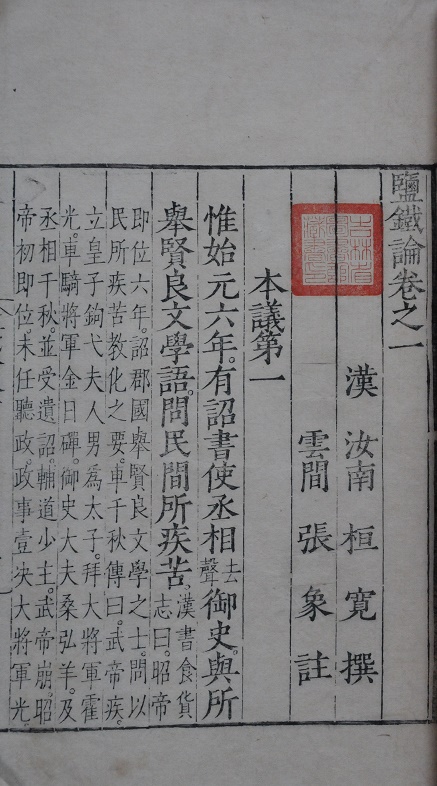 鹽鐵論卷之一
漢 汝南 桓寬 撰
雲間 張象 註
本議第一
惟始元六年。有詔書使丞相去聲御史。與所
舉賢良文學語。問民間所疾苦。漢書食貨志曰。昭帝
即位六年。詔郡國舉賢良文學之士。問以
民所疾苦教化之要。車千秋傳曰。武帝疾。
立皇子鉤弋夫人男為太子。拜大將軍霍
光。車騎將軍金日磾。御史大夫桑弘羊。及
丞相千秋。並受遺詔。輔道少主。武帝崩。昭
帝初即位。未任聽政。政事壹决大將軍光。